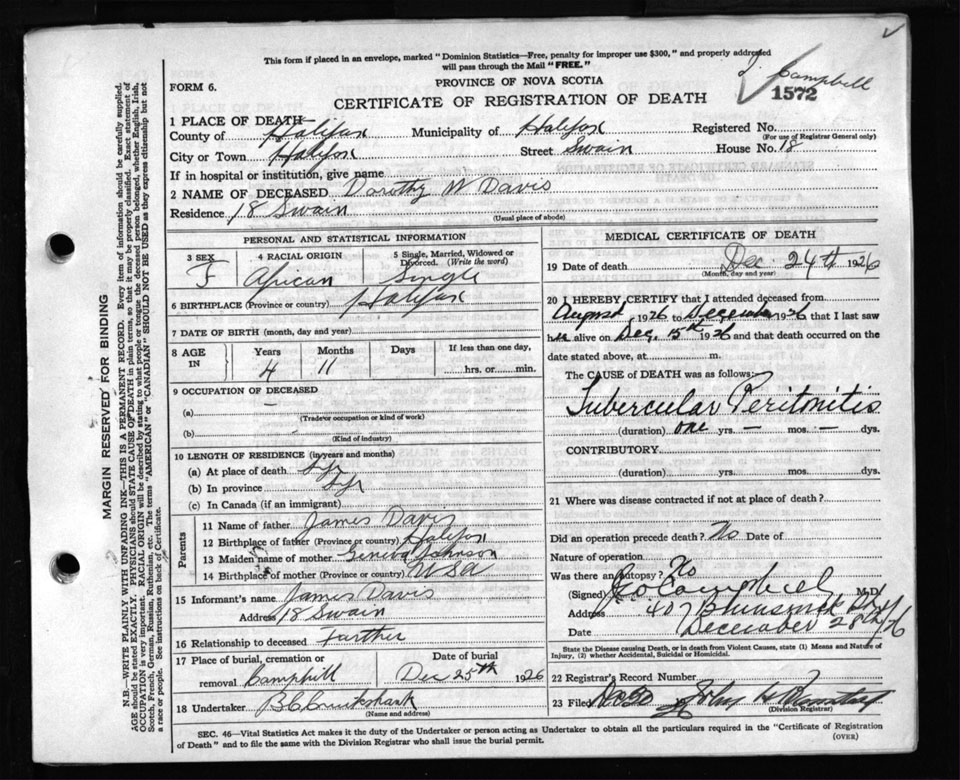 This form if placed in an envelope, marked "Dominion Statistics—Free, penalty for improper use $300," and properly addressed
will pass through the Mail "FREE."
FORM 6.
PROVINCE OF NOVA SCOTIA
CERTIFICATE OF REGISTRATION OF DEATH
Campbell
1572
1 PLACE OF DEATH
County of Halifax Municipality of Halifax Registered No.
(For use of Registrar General only)
City or Town Halifax Street Swain House No. 18
If in hospital or institution, give name
2 NAME OF DECEASED Dorothy W Davis
Residence 18 Swain
(Usual place of abode)
PERSONAL AND STATISTICAL INFORMATION
3 SEX F
4 RACIAL ORIGIN African
5 Single, Married, Widowed or Divorced. (Write the word) Single
6 BIRTHPLACE (Province or country) Halifax
7 DATE OF BIRTH (month, day and year)
8 AGE IN Years 4 Months 11 Days If less than one day, hrs. or min.
9 OCCUPATION OF DECEASED
(a)
(Trade or occupation or kind of work)
(b)
(Kind of industry)
10 LENGTH OF RESIDENCE (in years and months)
(a) At place of death
(b) In province
(c) In Canada (if an immigrant)
Parents
11 Name of father James Davis
12 Birthplace of father (Province or country) Halifax
13 Maiden name of mother Geneva Johnson
14 Birthplace of mother (Province or country) USA
15 Informant's name James Davis
Address 18 Swain
16 Relationship to deceased Farther
17 Place of burial, cremation or removal Camphill
Date of burial Dec 25th 1926
18 Undertaker Cruikshank
(Name and address)
MEDICAL CERTIFICATE OF DEATH
19 Date of death Dec. 24th 1926
(Month, day and year)
20 I HEREBY CERTIFY that I attended deceased from
August 1926 to December 1926 that I last saw
her alive on Dec. 15th 1926 and that death occurred on the
date stated above, at m.
The CAUSE of DEATH was as follows:
Tubercular Peritonitis
(duration) one yrs. — mos. — dys.
CONTRIBUTORY.
(duration) yrs. mos. dys.
21 Where was disease contracted if not at place of death?
Did an operation precede death? No Date of
Nature of operation
Was there an Autopsy? No
(Signed) Campbell M.D.
Address 407 Brunswick St
Date December 28th/26
State the Disease causing Death, or in death from Violent Causes, state (1) Means and Nature of
Injury, (2) whether Accidental, Suicidal or Homicidal.
22 Registrar's Record Number
23 Filed John
(Division Registrar)
SEC. 46—Vital Statistics Act makes it the duty of the Undertaker or person acting as Undertaker to obtain all the particulars required in the "Certificate of Registration
of Death" and to file the same with the Division Registrar who shall issue the burial permit.
(OVER)
MARGIN RESERVED FOR BINDING
N.B.—WRITE PLAINLY WITH UNFADING INK—THIS IS A PERMANENT RECORD. Every item of information should be carefully supplied.
AGE should be stated EXACTLY. PHYSICIANS should STATE CAUSE OF DEATH in plain terms, so that it may be properly classified. Exact statement of
OCCUPATION is very important. RACIAL ORIGIN will be described by stating to what people or tongue the deceased person belonged, whether English, Irish,
Scotch, French, German, Russian, Ruthenian, etc. The terms "AMERICAN" or "CANADIAN" SHOULD NOT BE USED as they express citizenship but not
a race or people. See instructions on back of Certificate.